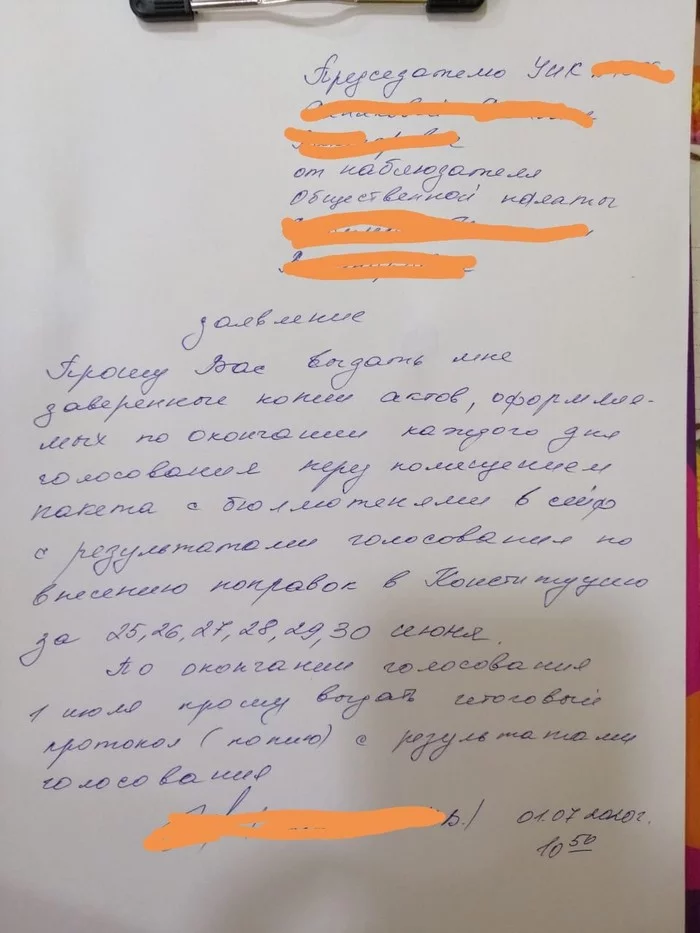 Председателю УИК
от наблюдателя
Общественной палаты
заявление
Прошу Вас выдать мне
заверенные копии актов, оформляе-
мых по окончании каждого дня
голосования перед помещением
пакета с бюллютенями в сейф
с результатами голосования по
внесению поправок в Конституцию
за 25, 26, 27, 28, 29, 30 июня.
По окончании голосования
1 июля прошу выдать итоговый
протокол (копию) с результатами
голосования
01.07.2020г.
10 50